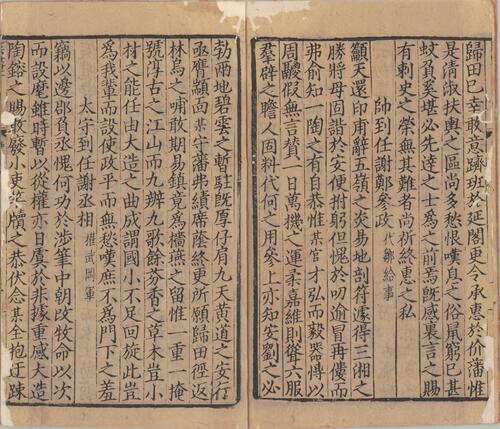 歸田已幸敢意躋班於延閣更令承惠於价藩惟
是清淑扶輿之區尚多愁恨嘆息之俗尾窮已甚
蚊負奚堪必先達之士爲之前焉旣感裏言之賜
有刺史之榮無其難者尚祈終惠之私
帥到任謝鄭參政 代鄒給事
籲天還印甫辭五嶺之炎易地剖符濾得三湘之
勝將母固諧於安便拊躬但愧於叨逾冒再僂而
弗俞知一陶之有自恭惟某官才弘而毅器博以
周鬷假無言贊一日萬機之運柔嘉維則聳六服
羣辟之瞻人固料代何之用參上亦知安劉之必
勃兩地碧雲之暫駐旣厚仔肩九天黃道之安行
亟膺顓面某守藩弗績席蔭終更所願歸田徑返
林烏之哺敢期易鎮竟爲檣燕之留惟一重一掩
號淳古之江山而九辨九歌餘芬香之草木豈小
材之能任由大造之曲成謂國小不足回旋此豈
爲我輩而設使政平而無愁嘆庶不爲門下之羞
太守到任謝丞相 權武岡軍
竊以邊鄣負丞愧何功於涉筆中朝攽牧命以次
而設麾雖時暫以從權亦日虞於非據重感大造
陶鎔之賜敢發小吏笇牘之恭伏念某全抱迂踈